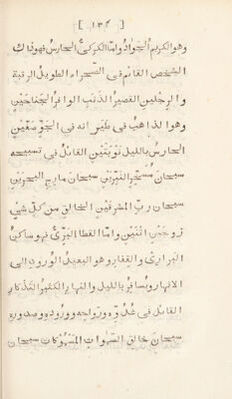 [ ١٣٤ ]
وهو الكريم الجواد واما الكركى الحارس فهو ذاك
الشخص القائم فى الصحراء الطويل الرقبة
والرجلين القصير الذنب الوافر الجناحين
وهو الذاهب فى طيرانه فى الجو صفين
الحارس بالليل نوبتين القائل فى تسبيحه
سبحان مسخر النيرين سبحان مارج البحرين
سبحان رب المشرقين الخالق من كل شئ
زوجين اثنين واما القطا البرى فهو ساكن
البرارى والقفار وهو البعيد الورود الى
الانهار ويسافر بالليل والنهار الكثير التذكار
القائل فى غدوه ورواحه ووروده وصدوره
سبحان خالق السموات المسموكات سبحان